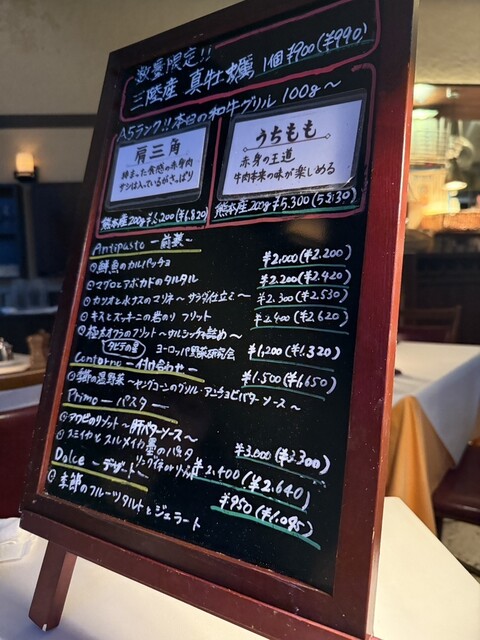 数量限定!!
三陸産 真牡蠣 1個 ¥900(¥990)
A5ランク!!本日の和牛グリル 100g~
肩三角
締まった食感の赤身肉
サシは入っているがさっぱり
熊本産200g ¥6,200(¥6,820)
うちもも
赤身の王道
牛肉本来の味が楽しめる
熊本産200g ¥5,300(5830)
Antipasto ー前菜ー
①鮮魚のカルパッチョ ¥2,000(¥2,200)
②マグロとアボカドのタルタル ¥2,200(¥2,420)
③カツオと水ナスのマリネ ~サラダ仕立て~ ¥2,300(¥2,530)
④キスとズッキーニの岩のり フリット ¥2,400(¥2,620)
⑤極太オクラのフリット~サルシッチャ詰め~ ¥1,200(¥1,320)
ヨーロッパ野菜研究会
Contorno ー付け合わせー
①季節の温野菜 ~ヤングコーンのグリル・アンチョビバターソース~ ¥1,500(¥1,650)
Primo ーパスター
①アワビのリゾット~肝バターソース~ ¥3,000(¥2,300)
②スミイカと スルメイカ墨のパスタ
リングイネ ¥2,400(¥2,640)
Dolce ーデザートー
①季節のフルーツタルトとジェラート ¥950(¥1,045)